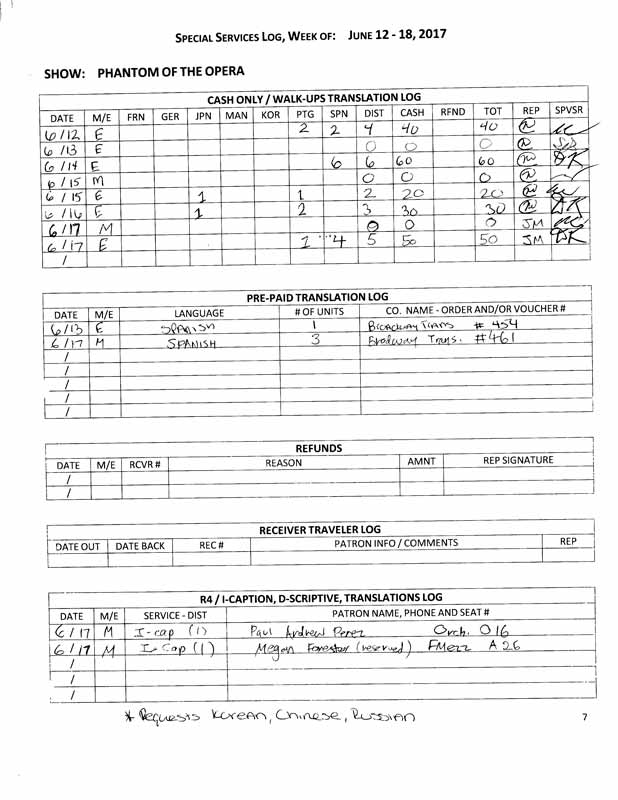 SPECIAL SERVICES LOG, WEEK OF: JUNE 12 - 18, 2017
SHOW: PHANTOM OF THE OPERA
CASH ONLY / WALK-UPS TRANSLATION LOG
DATE M/E FRN GER JPN MAN KOR PTG SPN DIST CASH RFND TOT REP SPVSR
6/12 E 2 2 4 40 40
6/13 E 0 0 0
6/14 E 6 6 60 60
6/15 M 0 0 0
6/15 E 1 1 2 20 20
6/16 E 1 2 3 30 30
6/17 M 0 0 0 JM
6/17 E 1 4 5 50 50 JM
/
PRE-PAID TRANSLATION LOG
DATE M/E LANGUAGE # OF UNITS CO. NAME - ORDER AND/OR VOUCHER #
6/13 E SPANISH 1 Broadway Trans # 454
6/17 M SPANISH 3 Broadway Trans. #461
/
/
/
/
/
REFUNDS
DATE M/E RCVR # REASON AMNT REP SIGNATURE
/
/
RECEIVER TRAVELER LOG
DATE OUT DATE BACK REC # PATRON INFO / COMMENTS REP
R4 / I-CAPTION, D-SCRIPTIVE, TRANSLATIONS LOG
DATE M/E SERVICE - DIST PATRON NAME, PHONE AND SEAT #
6/17 M I-cap (1) Paul Andrew Perez Orch. O 16
6/17 M I-Cap (1) Megan Forester (reserved) FMezz A 26
/
/
* Requests Korean, Chinese, Russian
7